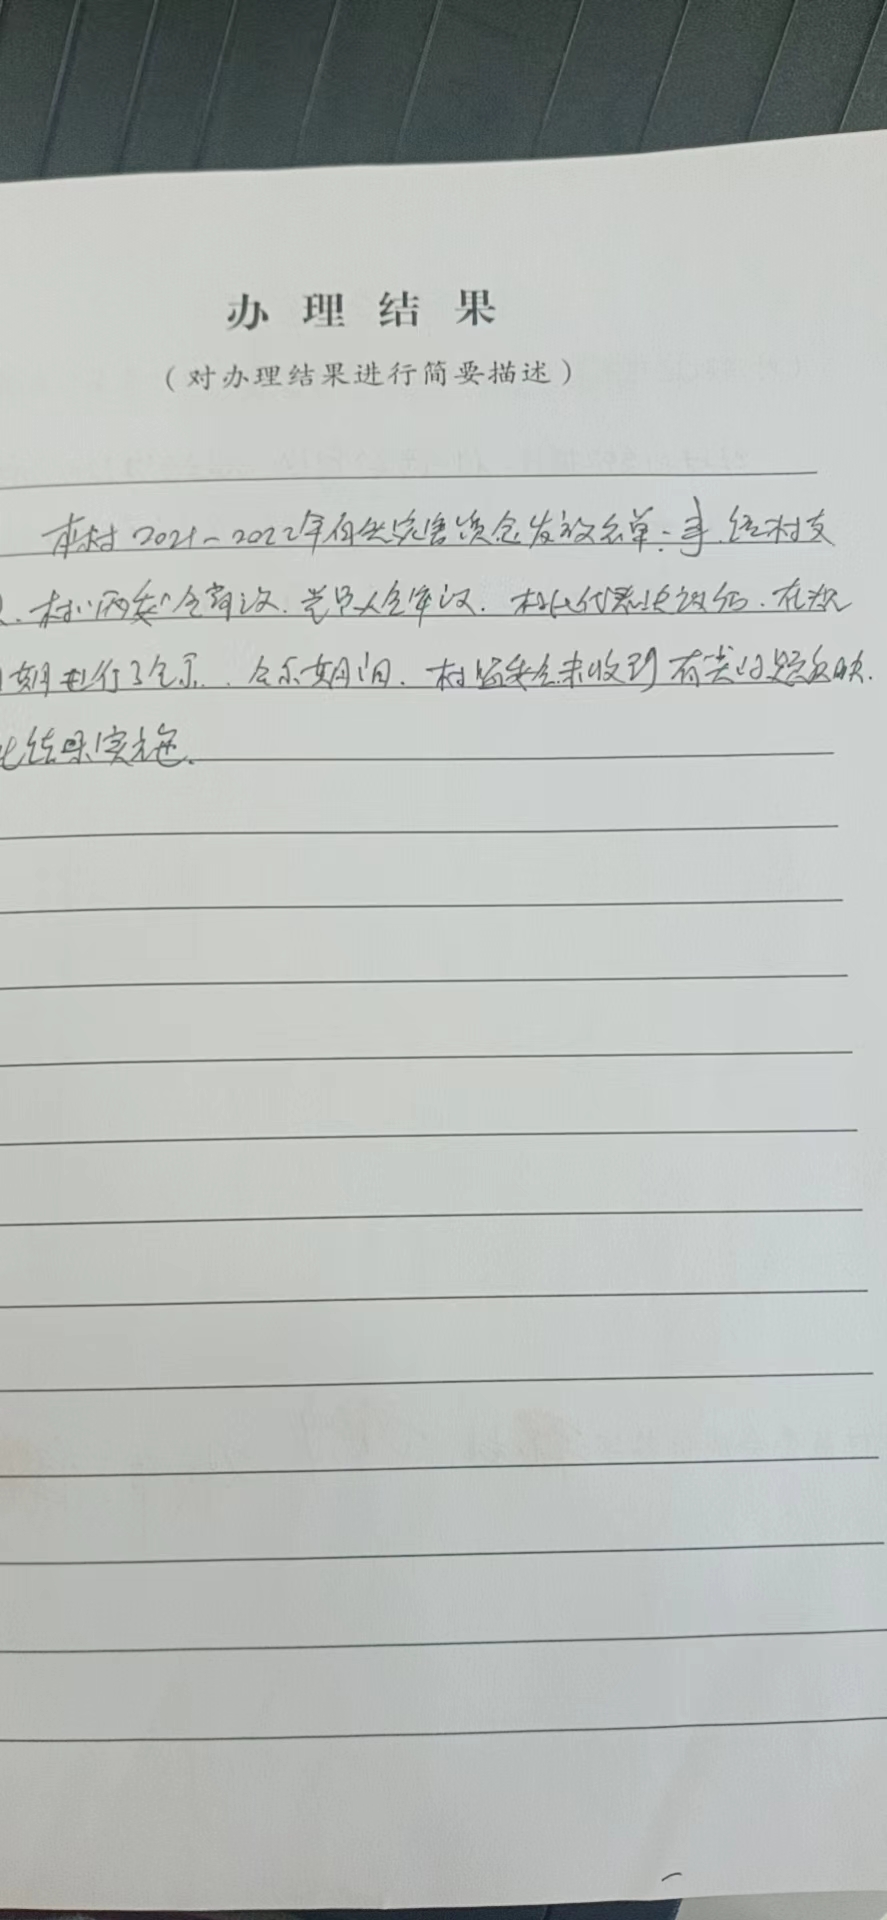 办理结果
(对办理结果进行简要描述)
本村2021-2022年自然灾害资金发放名单一事.经村支
.村"两委"会商议.党员大会审议.村民代表决议后.在规
期进行了公示.公示期间.村监委会未收到有类问题反映.
此结果实施.